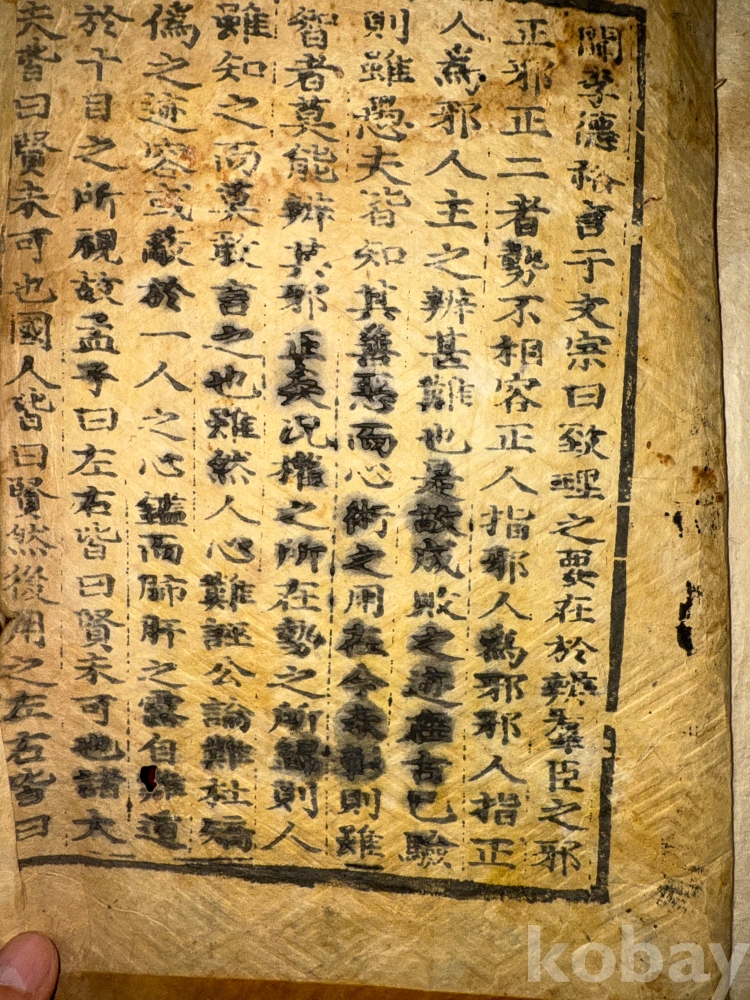 聞李德裕言于文宗曰致理之要在於辨羣臣之邪
正邪正二者勢不相容正人指邪人爲邪邪人指正
人爲邪人主之辨甚難也是故成敗之迹在古已驗
則雖愚夫皆知其善惡而心術之用在今未彰則雖
智者莫能辨其邪正矣况權之所在勢之所歸則人
雖知之而莫敢言之也雖然人心難誣公論難杜矯
僞之迹容或蔽於一人之心鑑而肺肝之露自難逭
於十目之所視故孟子曰左右皆曰賢未可也諸大
夫皆曰賢未可也國人皆曰賢然後用之左右皆曰
kobay